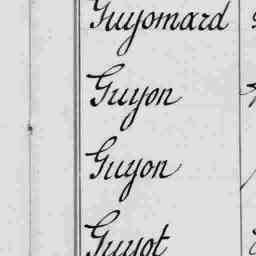 Guyomard
Guyon
Guyon
Guyot